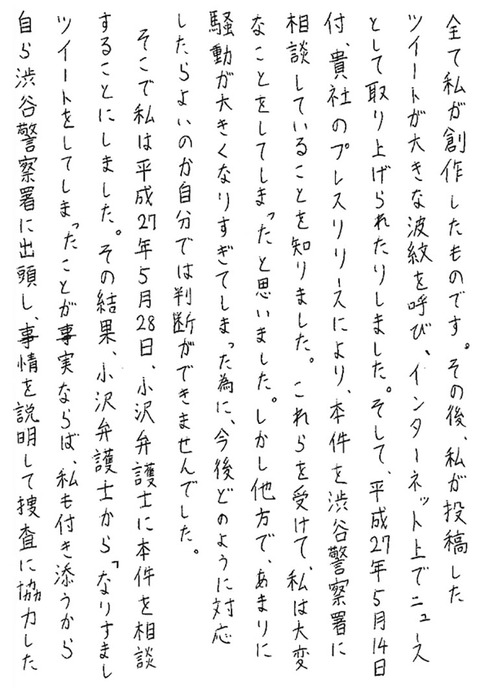 全て私が創作したものです。その後、私が投稿した
ツイートが大きな波紋を呼び、インターネット上でニュース
として取り上げられたりしました。そして、平成27年5月14日
付、貴社のプレスリリースにより、本件を渋谷警察署に
相談していることを知りました。これらを受けて、私は大変
なことをしてしまったと思いました。しかし他方で、あまりに
騒動が大きくなりすぎてしまった為に、今後どのように対応
したらよいのか自分では判断ができませんでした。
そこで私は平成27年5月28日、小沢弁護士に本件を相談
することにしました。その結果、小沢弁護士から「なりすまし
ツイートをしてしまったことが事実ならば、私も付き添うから
自ら渋谷警察署に出頭し、事情を説明して捜査に協力した